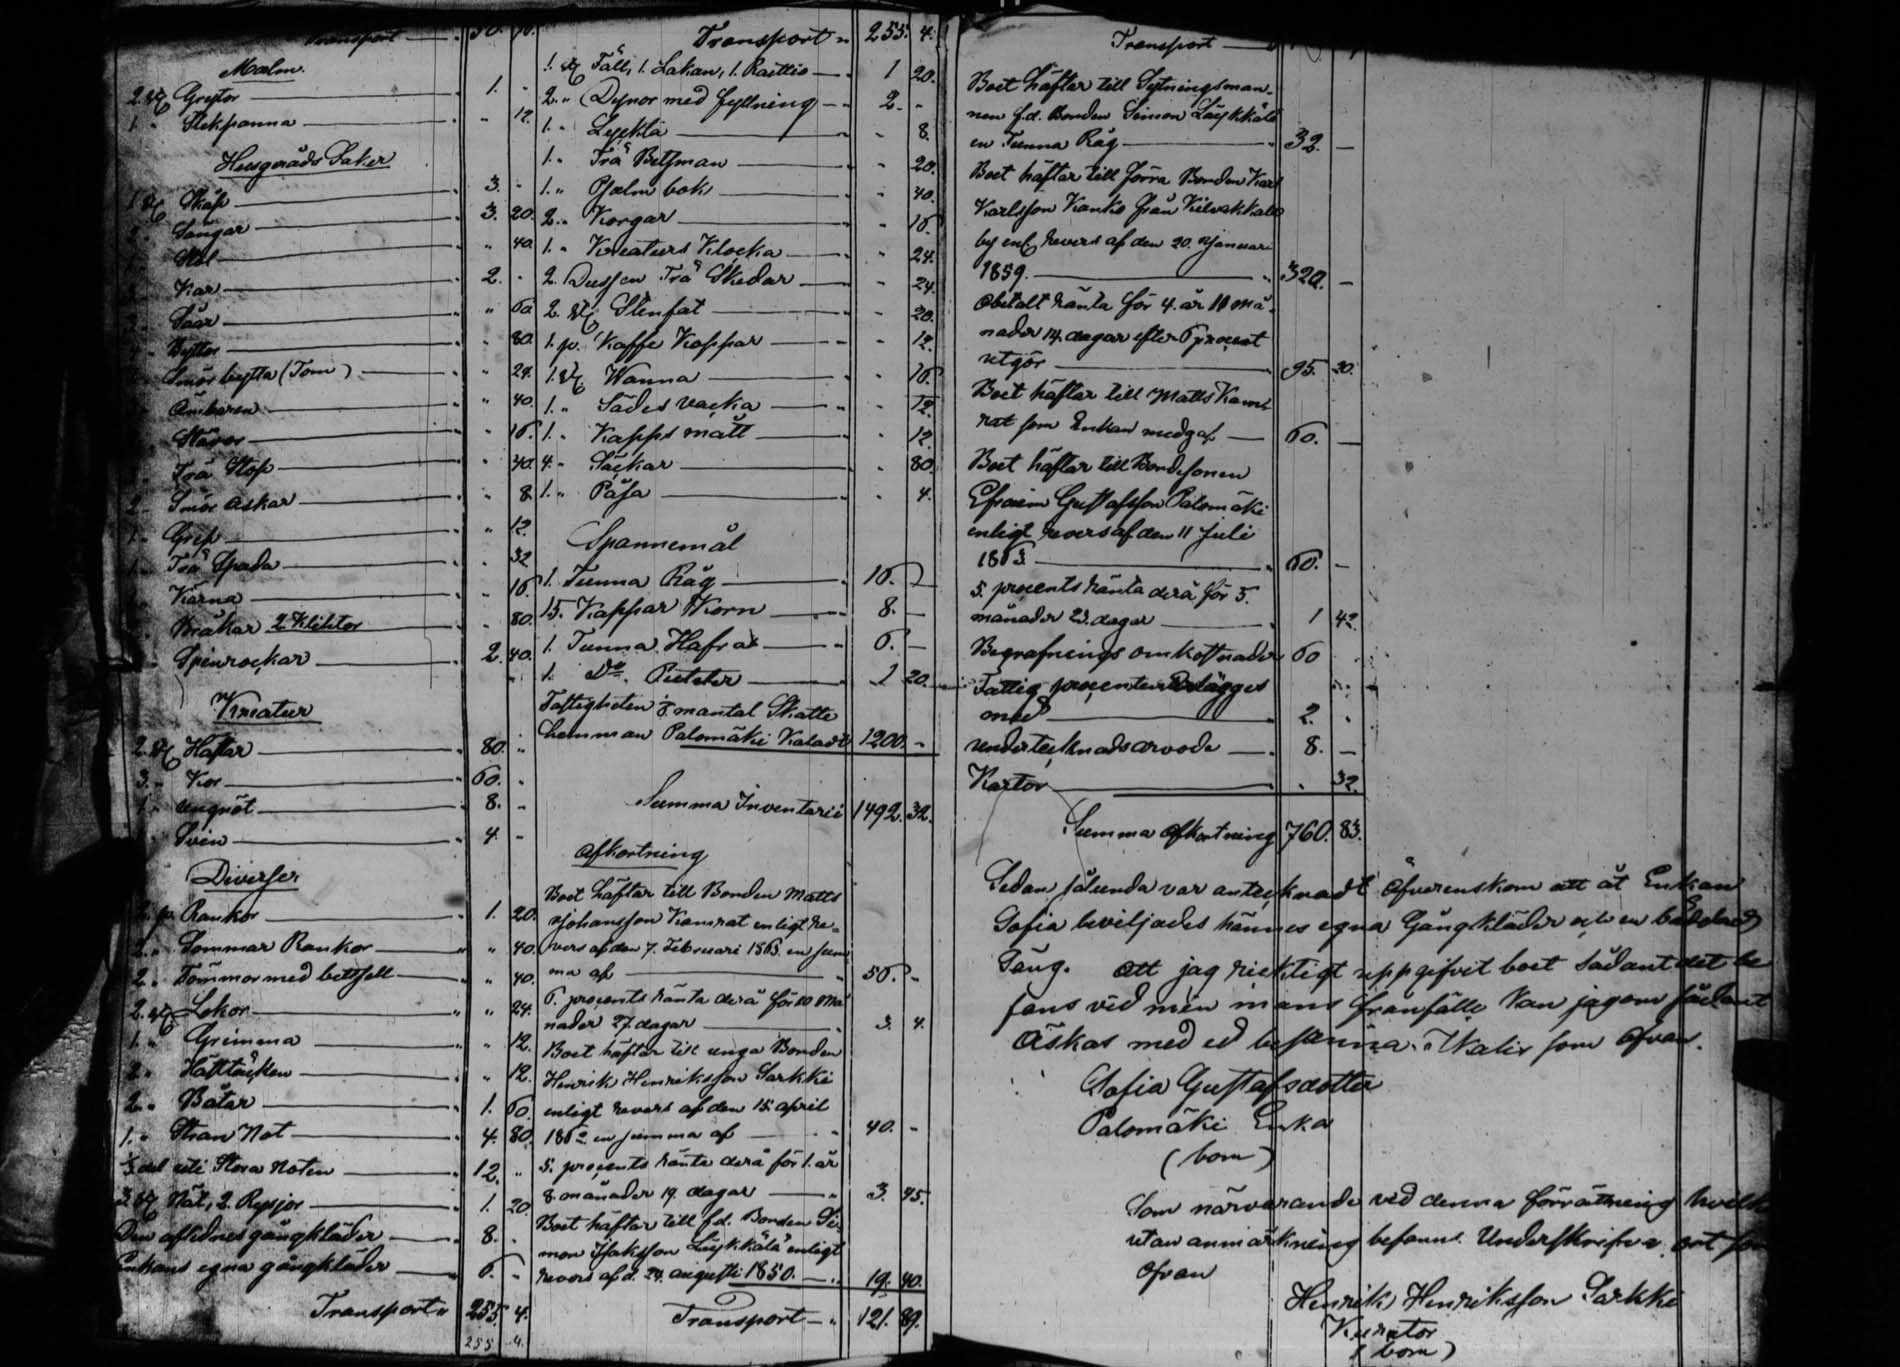 Transport
Malm.
2. st Grytor 1. -
1. " Stekpanna - 12.
Husgeråds Saker
1 st Skåp 3. -
Sängar 3. 20.
Stol " 40.
Kar 2. -
Såar " 60
Byttor - 80.
Smörbytta (Tom) " 24.
Ämbaren " 40.
Stäfvor - 16.
Trä Stop - 40.
2. Smör Askar - 8.
1. Grep " 12.
1. Trä Spada - 32
Kärna - 16
Bråkar 2 Klihtor - 80.
Spinrockar 2. 40.
Kreatur
2. st Hästar 80. "
3. " Kor 60. -
1. " ungnöt 8. -
Svin 4. -
Diverser
2. p. Rankor 1. 20.
2. " Sommar Rankor " 40.
2. " Tömmor med bettsell " 40.
2. st Lokor " 24.
1. " Grimma " 12.
2. " Hästtäcken " 12.
2. " Båtar 1. 60.
1. " Stran Not 4. 80.
⅓ del uti Stora Noten 12. "
3. st Nät, 2. Rysjor 1. 20.
Den aflednes gångkläder 8. -
Enkans egna gångkläder 6. -
Transport " 255. 4.
255 4.
Transport " 255. 4.
1. st Fäll, 1. Lakan, 1. Raittio 1 20.
2. " Dynor med fyllning 2. -
1. " Lyckta - 8.
1. " Trä Betsman - 20.
1. " Psalm bok - 40.
2. " Korgar - 16.
1. " Kreaturs Klocka - 24.
2. Dussen Trä Skedar - 24.
2. st Stenfat - 20.
1. p. Kaffe Koppar - 12.
1. st Wanna - 16.
1. " Sädes vacka - 12.
1. " Kapps mått - 12.
4. " Säckar - 80.
1. " Påsa - 4.
Spannemål
1. Tunna Råg 16. -
15. Kappar Korn 8. -
1. Tunna Hafra 6. -
1. Do. 1 20.
Fastigheten mantal Skatte
hemman Palomäki Kaladt 1200. -
Summa Inventarii 1492. 32.
Afkortning
Boet häftar till Bonden Matts
Johansson Kamrat enligt re-
vers af den 7. Februari 1863 en sum
ma af 56. -
6. procents ränta derå för 10 må
nader 27. dagar 3. 4.
Boet häftar till unga Bonden
Henrik Henriksson Sarkki
enligt revers af den 15. april
1862 en summa af 40. -
5. procents ränta derå för 1. år
8. månader 19. dagar 3. 45.
Boet häftar till f.d. Bonden Si-
mon Isaksson Läykkälä enligt
revers af d. 24. augusti 1850. 19. 40.
Transport " 121. 89.
Transport
Boet häftar till Sytningsman-
nen f.d. Bonden Simon Läykkälä
en Tunna Råg 32. -
Boet häftar till förra Bonden Karl
Karlsson Kanko från Kilvakkala
by enl. revers af den 20. Januari
1859. 320. -
Obetalt ränta för 4. år 11 må-
nader 14. dagar efter 6 procent
utgör 95. 20.
Boet häftar till Matts Kam-
rat som Enkan medgaf 60. -
Boet häftar till Bondesonen
Efraim Gustafsson Palomäki
enligt revers af den 11 Juli
1863 60. -
5. procents ränta derå för 5.
månader 23. dagar 1 42.
Begrafnings omkostnader 60
Fattig procenten erlägges
med 2. -
undertecknads arvode 8. -
Kartor - 32.
Summa afkortning 760. 83.
Sedan sålunda var antecknadt öfverenskom att åt Enkan
Sofia beviljades hännes egna Gångkläder och en bäddad
Säng. Att jag ricktigt uppgifvit boet sådant det be
fans vid min mans frånfälle kan jag om sådant
äskas med ed besanna. Wälis som ofvan.
Sofia Gustafsdotter
Palomäki Enka
(bom)
Som närvarande vid denna förrättning hvilk
utan anmärkning befanns. Underskrifva ort som
ofvan
Henrik Henriksson Sarkki
Kurator
(bom)